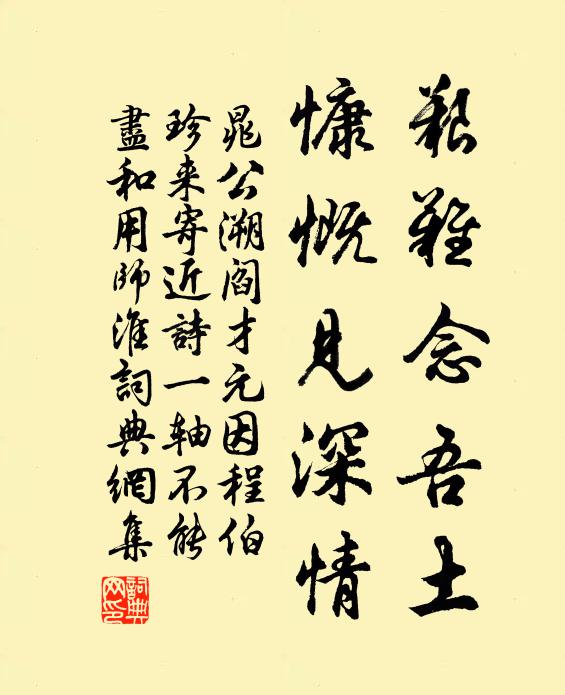 艱難念吾土
慷慨見深情
晁公溯閻才元因程伯
珍来寄近詩一轴不能
盡和用師淮詞典網集
詞典
网印